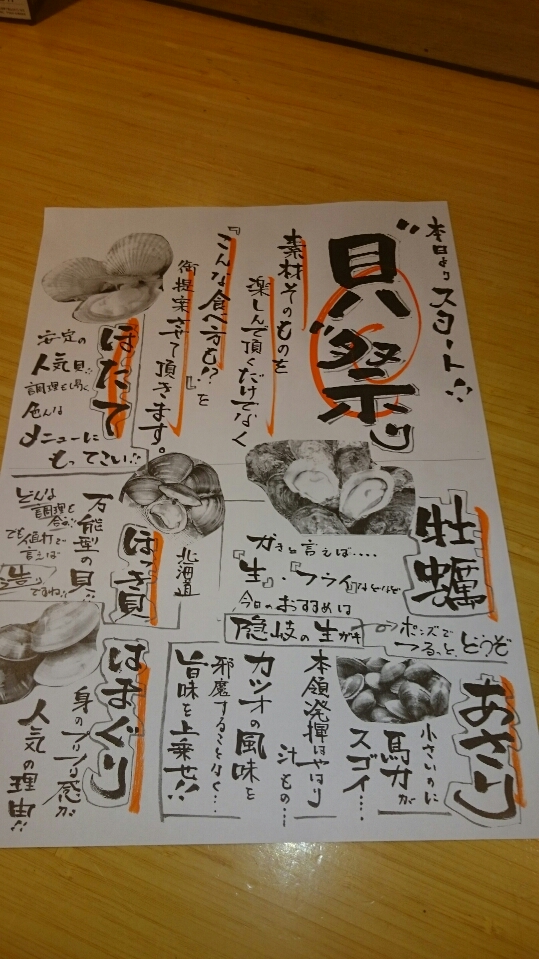 本日よりスタート!!
"貝"祭り
素材そのものを
楽しんで頂くだけでなく
『こんな食べ方も!?』を
御提案させて頂きます。
牡蠣
かきと言えば....
『生』・『フライ』などなど
今日のおすすめは
隠岐の生がき
ポンズで
つるっと、どうぞ
ほたて
安定の
人気貝!!
色んな
メニューに
もってこい!!
北海道
ほっき貝
万能型の貝!!
どんな
調理も
でも値打で
言えば
造り
ですね!!
あさり
小さいのに
馬力が
スゴイ...
本領発揮はやはり
汁もの...
カツオの風味を
邪魔することなく...
旨味を上乗せ!!
はまぐり
身のプリプリ感が
人気の理由!!